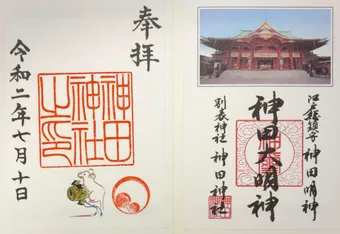 江戸総鎮守 神田明神
神田大明神
別表神社 神田神社
奉拝
神田
神社
之印
令和二年七月十日